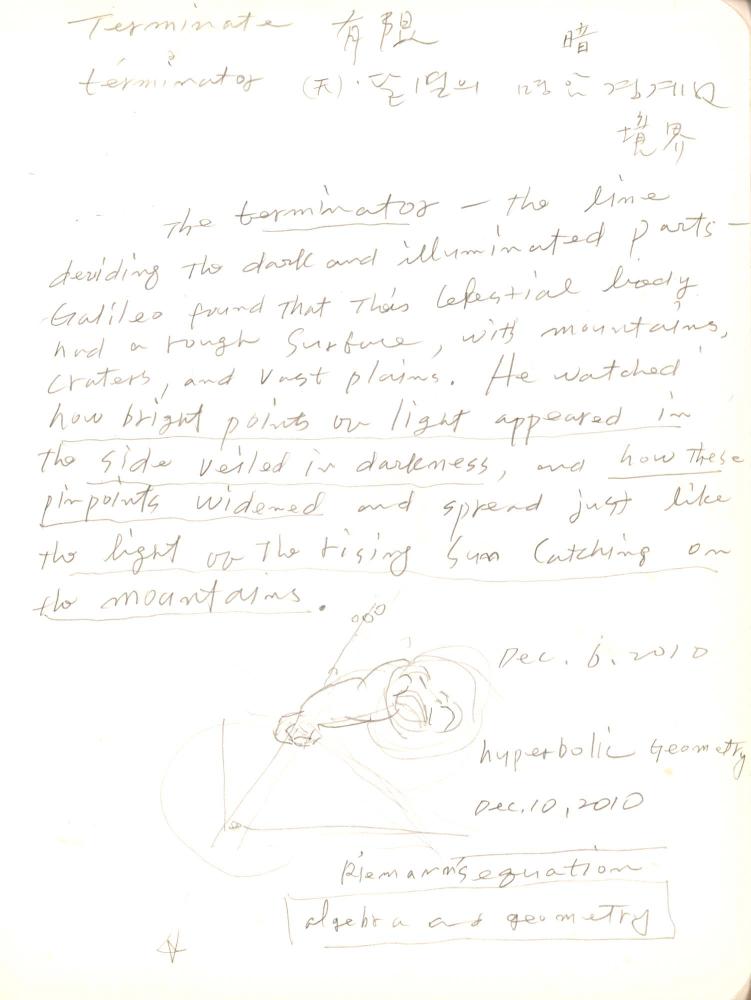 Terminate 有限 暗
terminator (天)·달·면의 명암 경계
境界
The terminator — the line
deviding the dark and illuminated parts —
Galileo found that this Celestial body
had a rough Surface, with mountains,
craters, and vast plains. He watched
how bright points on light appeared in
the side veiled in darkness, and how these
pinpoints widened and spread just like
the light of the rising Sun Catching on
the mountains.
90°
Dec. 6. 2010
hyperbolic Geometry
Dec. 10, 2010
Riemann's equation
algebra and geometry